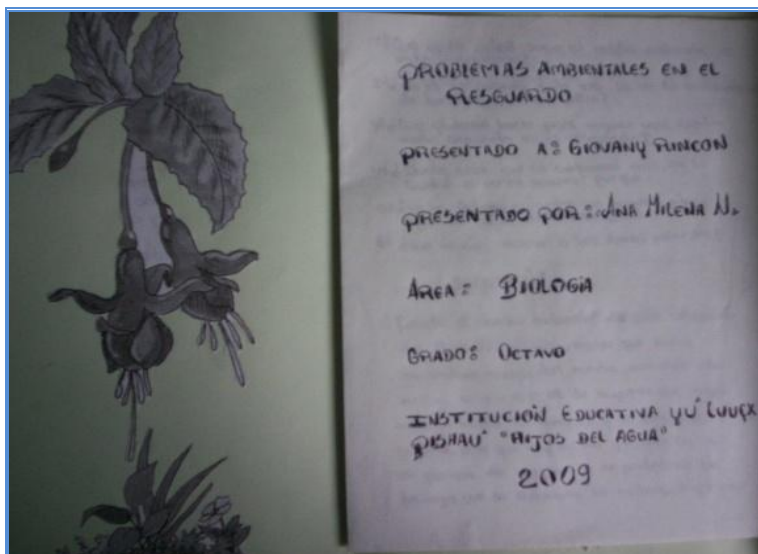 PROBLEMAS AMBIENTALES EN EL
RESGUARDO
PRESENTADO A: GIOVANY RINCON
PRESENTADO POR: ANA MILENA N.
ÁREA: BIOLOGIA
GRADO: OCTAVO
INSTITUCIÓN EDUCATIVA YU' LUUÇX
PISHAU "HIJOS DEL AGUA"
2009